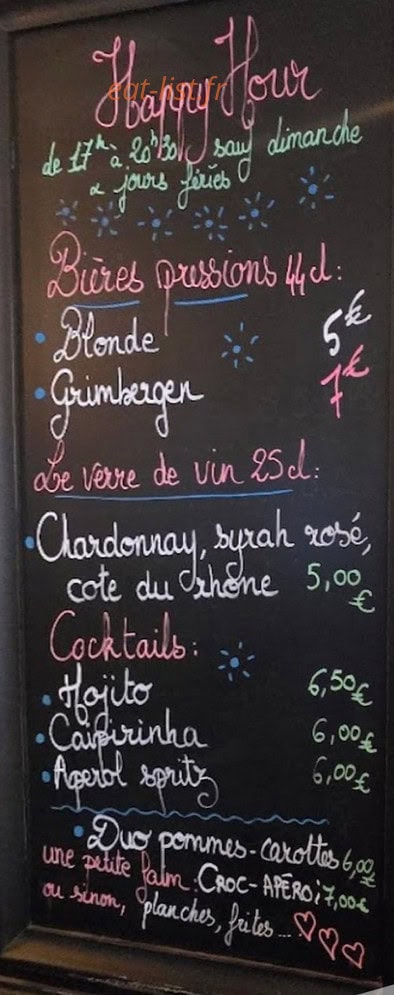 Happy Hour
eat-list.fr
de 17h à 20h30 sauf dimanche
& jours fériés
Bières pressions 44cl:
Blonde 5€
Grimbergen 7€
Le verre de vin 25cl:
Chardonnay, syrah rosé,
cote du rhône 5,00€
Cocktails:
Mojito 6,50€
Caipirinha 6,00€
Aperol spritz 6,00€
Duo pommes-carottes 6,00€
une petite faim: CROC-APÉRO: 7,00€
ou sinon, planches, frites...